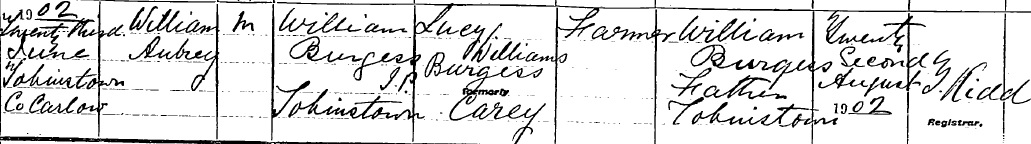 1902
Twenty Third
June
Tobinstown
Co Carlow
William
Aubrey
M
William
Burgess
J.P.
Tobinstown
Lucy
Williams
Burgess
formerly
Carey
Farmer
William
Burgess
Father
Tobinstown
Twenty
Second
August
1902
J. Kidd
Registrar.